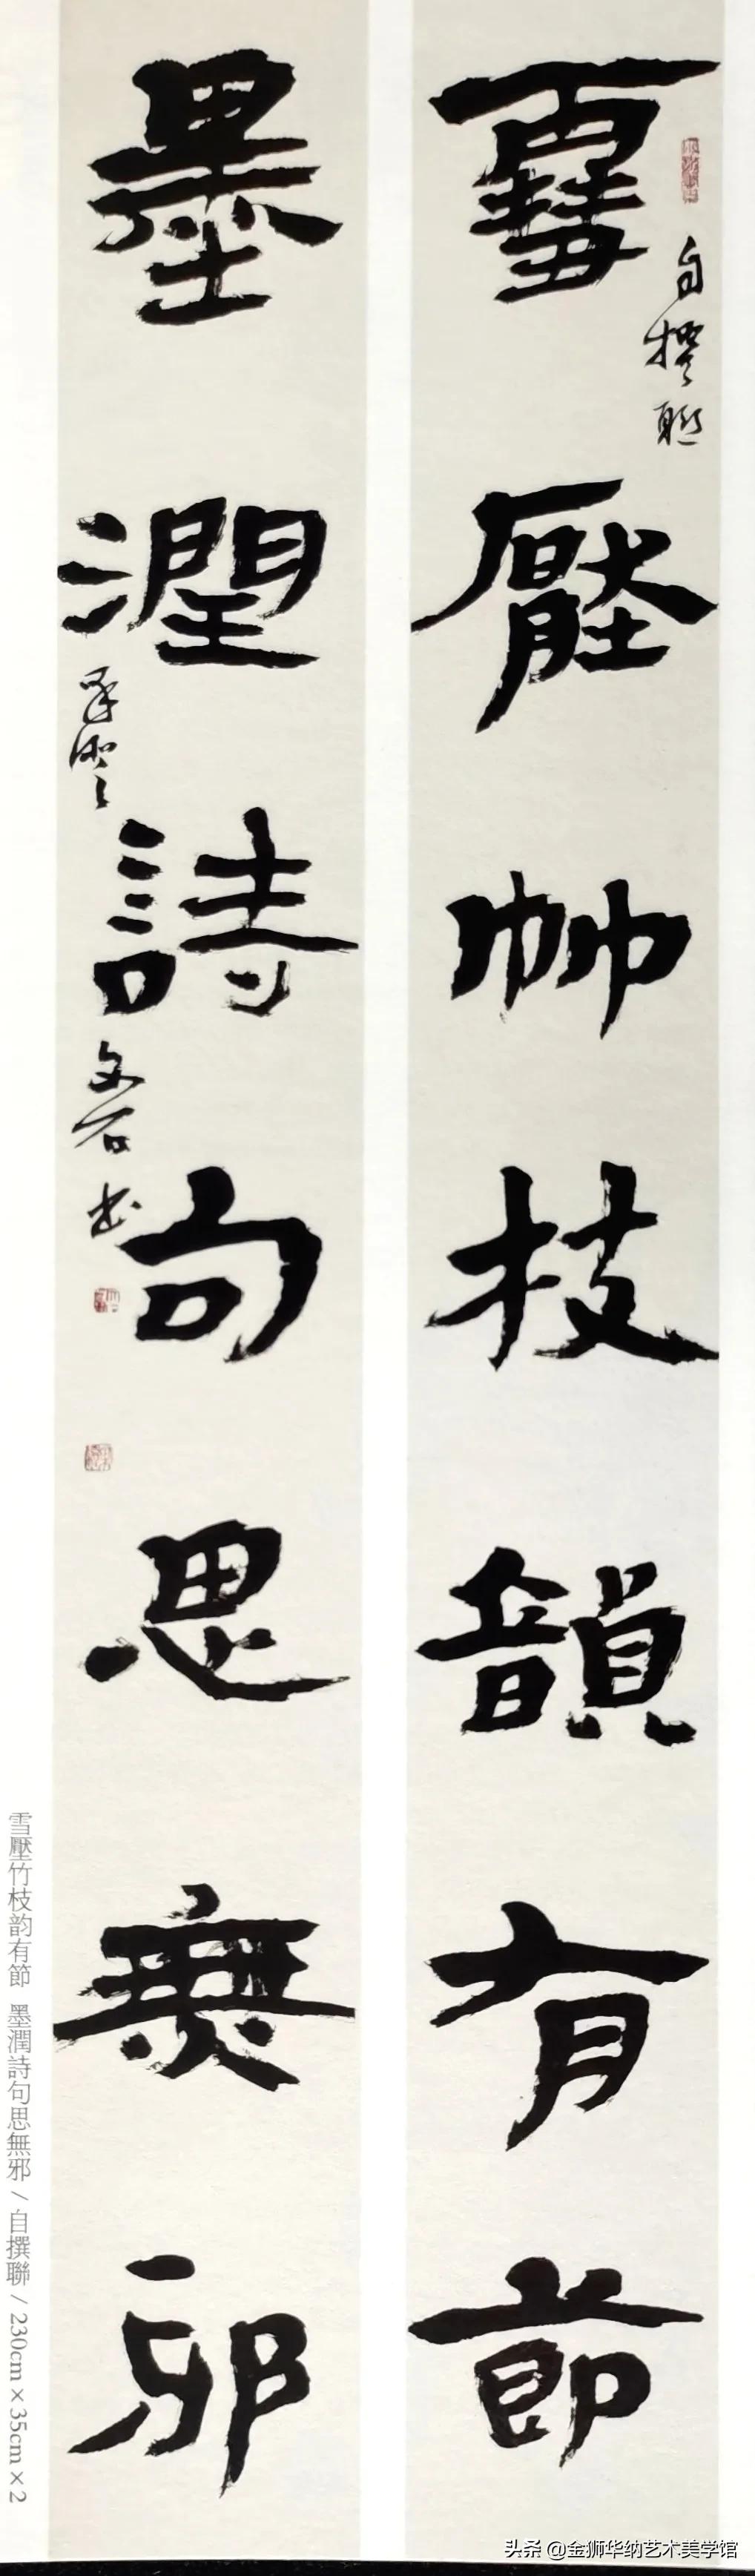 自撰聯
雪壓竹枝韻有節
墨潤詩句思無邪
文石書
雪壓竹枝韵有節 墨潤詩句思無邪 / 自撰聯 / 230cm×35cm×2
头条 @金狮华纳艺术美学馆